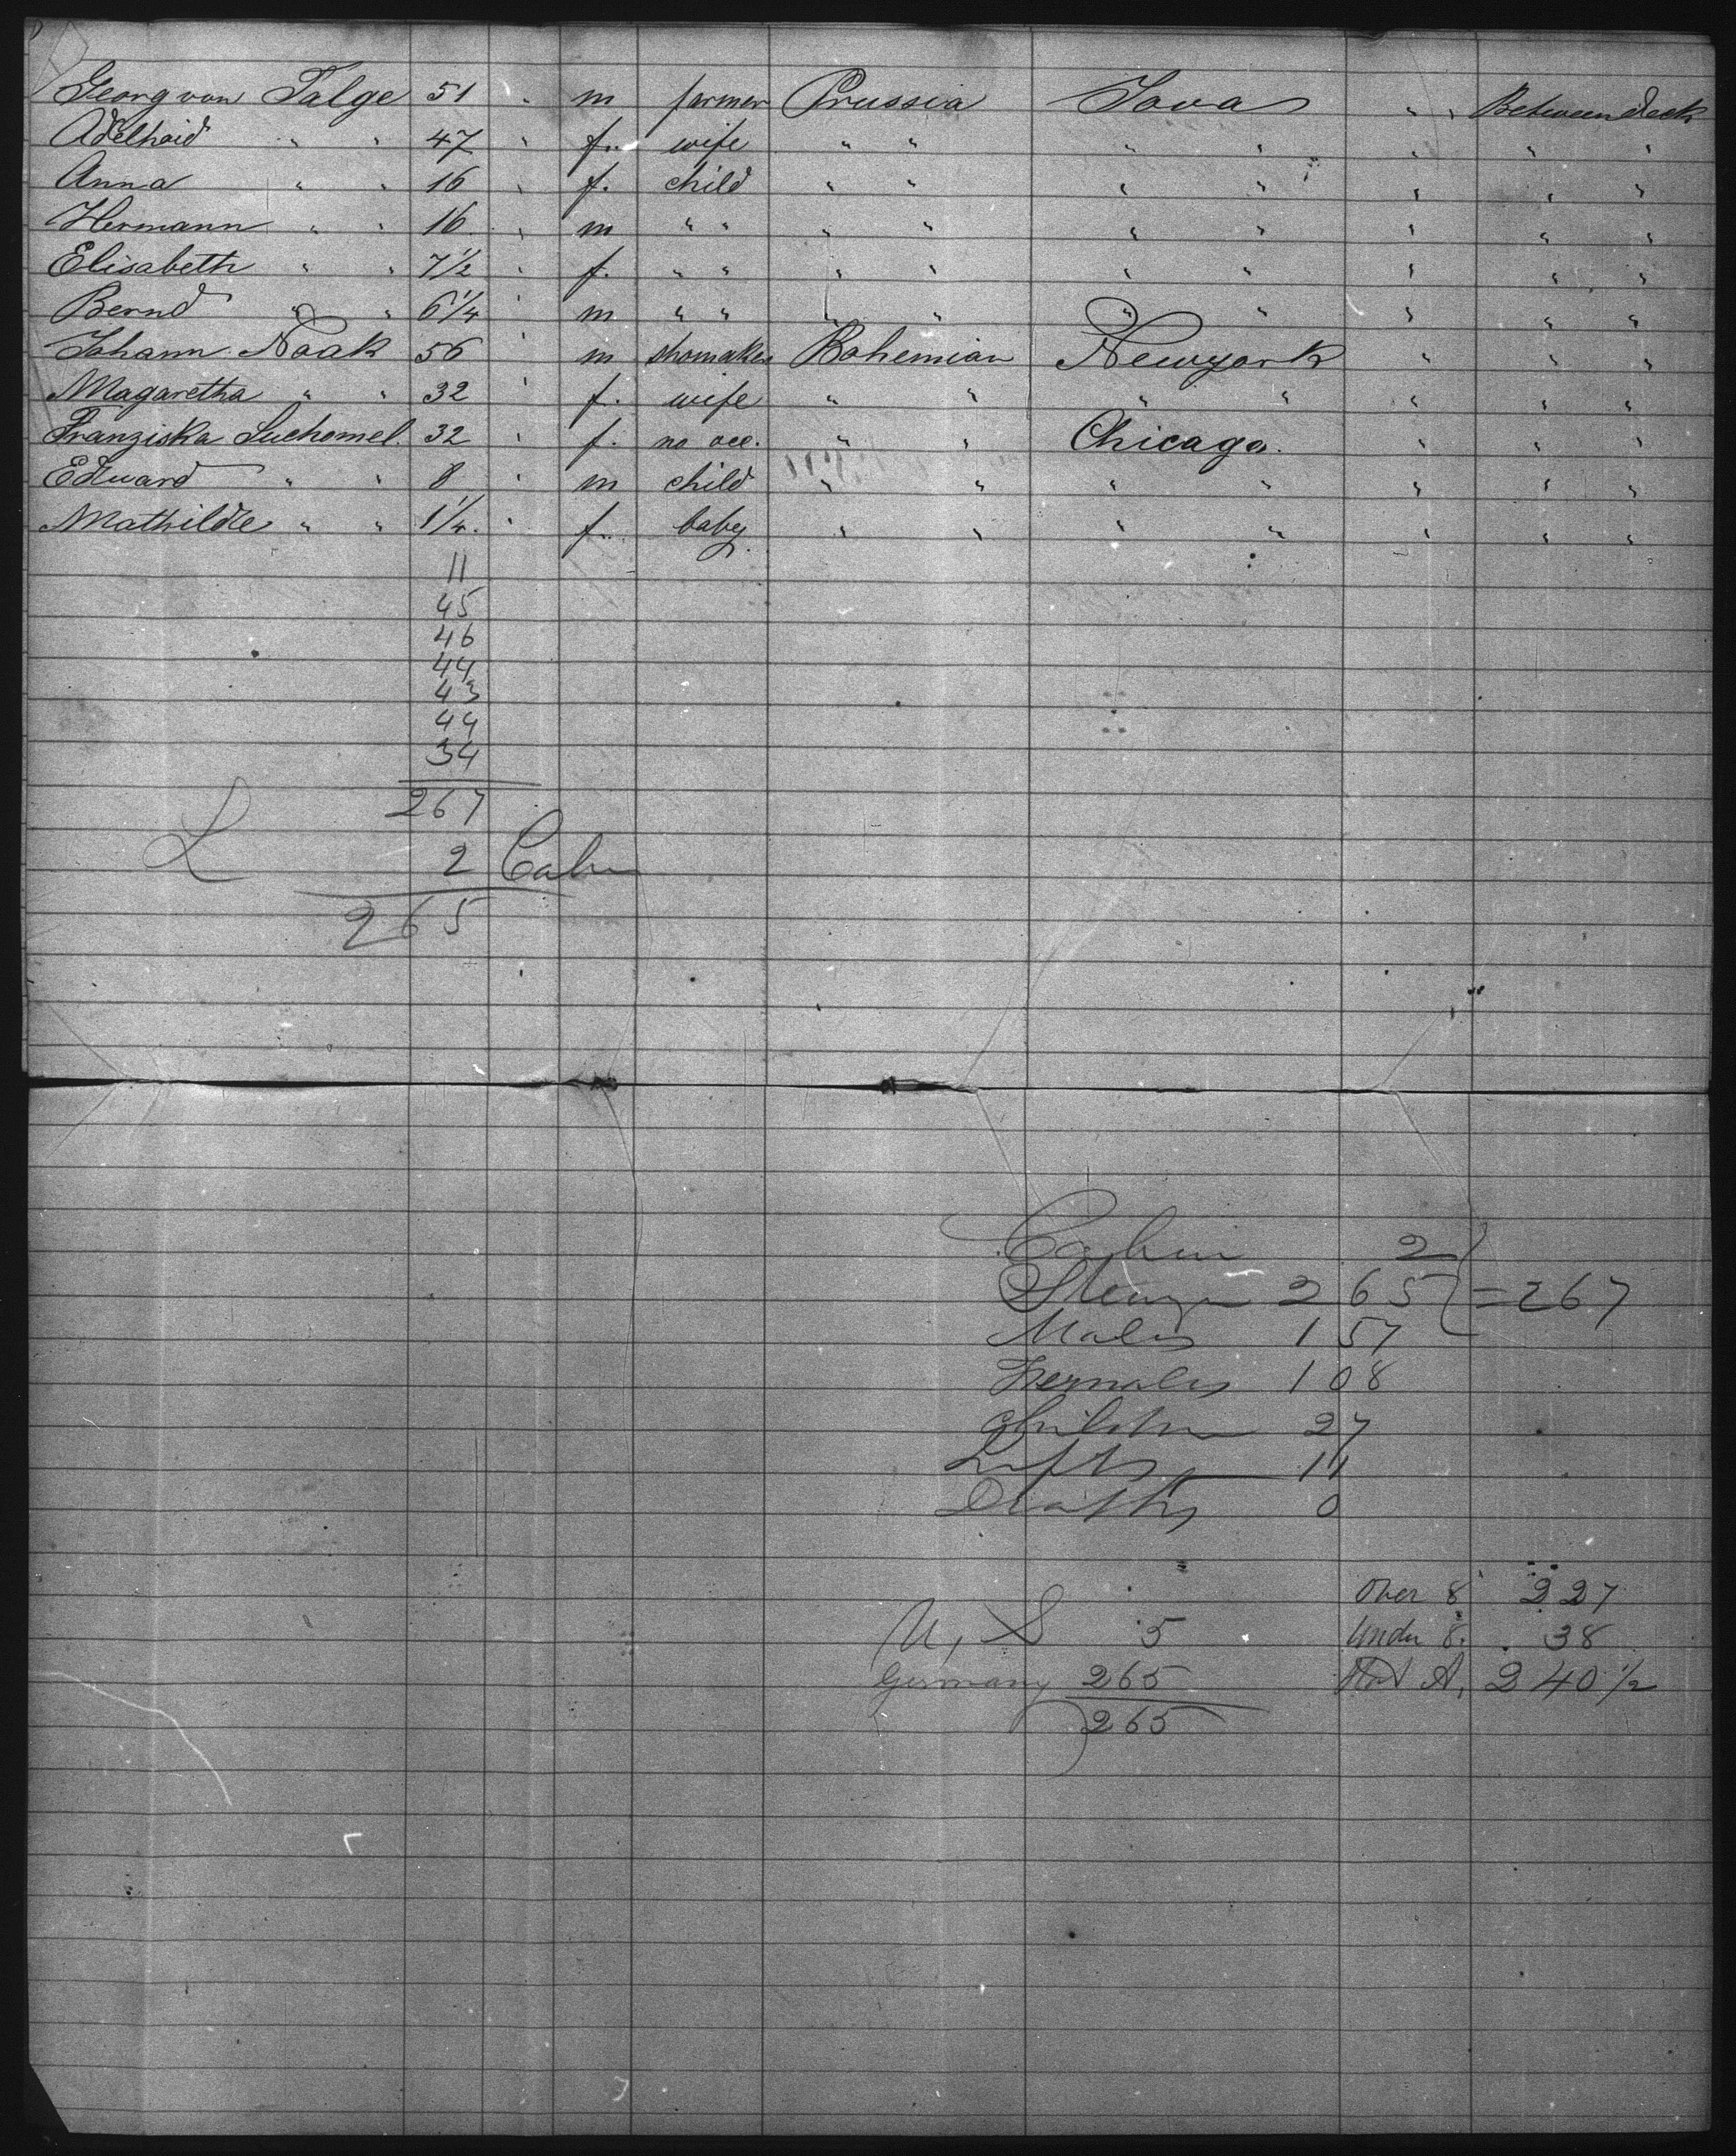 Georg von Talge 51 " m farmer Prussia Iowa " " Between deck
Adelhaid " " 47 " f. wife " " " " " " "
Anna " " 16 " f. child " " " " " " "
Hermann " " 16 " m " " " " " " " " "
Elisabeth " " 7 1/2 " f. " " " " " " " " "
Bernd " " 6 1/4 " m " " " " " " " " "
Johann Noak 56 " m shomaker Bohemian Newyork " " "
Magaretha " " 32 " f. wife " " " " " " "
Franziska Suchomel. 32 " f. no occ. " " Chicago. " " "
Eduard " " 8 " m child " " " " " " "
Mathilde " " 1 1/4. " f. baby. " " " " " " "
11
45
46
44
43
44
34
267
2 Cabin
265
Cabin 2
Steerage 265 } = 267
Males 157
Females 108
Children 27
11
Deaths 0
Over 8 227
U, S 5 Under 8. 38
Germany 265 A, 240 1/2
265